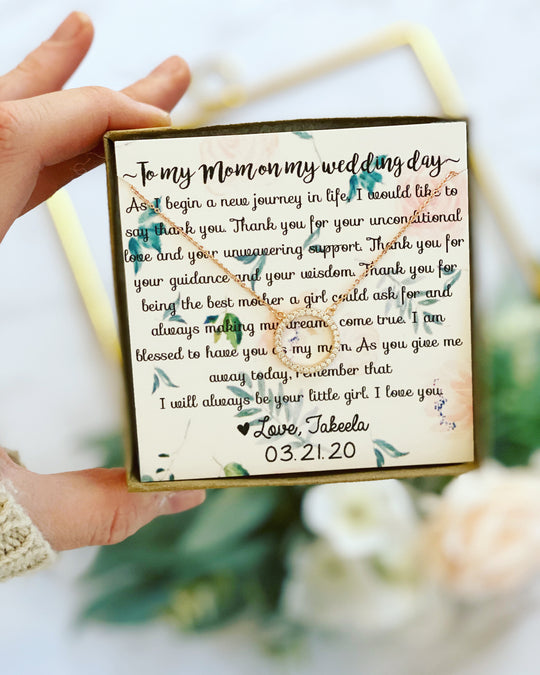 ~To my Mom on my wedding day~
As I begin a new journey in life, I would like to
say thank you. Thank you for your unconditional
love and your unwavering support. Thank you for
your guidance and your wisdom. Thank you for
being the best mother a girl could ask for and
always making my dreams come true. I am
blessed to have you as my mom. As you give me
away today, remember that
I will always be your little girl. I love you.
♥Love, Takeela
03.21.20